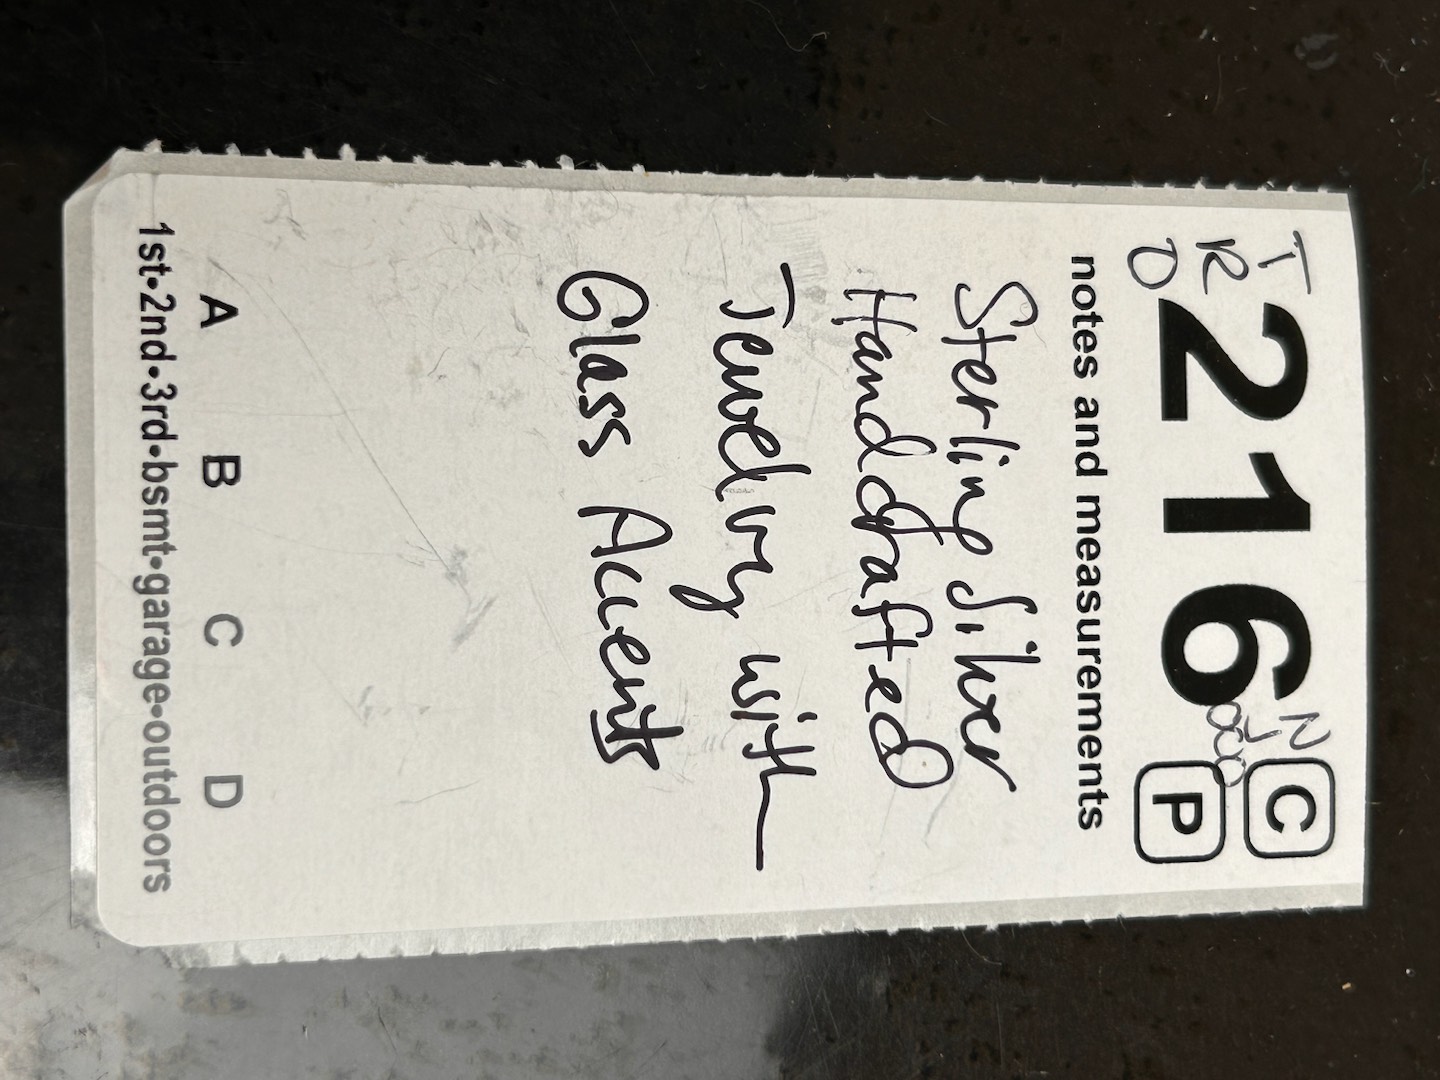 T
R
D
216
N
C
P
notes and measurements
Sterling Silver
Handcrafted
Jewelry with
Glass Accents
A B C D
1st•2nd•3rd•bsmt•garage•outdoors